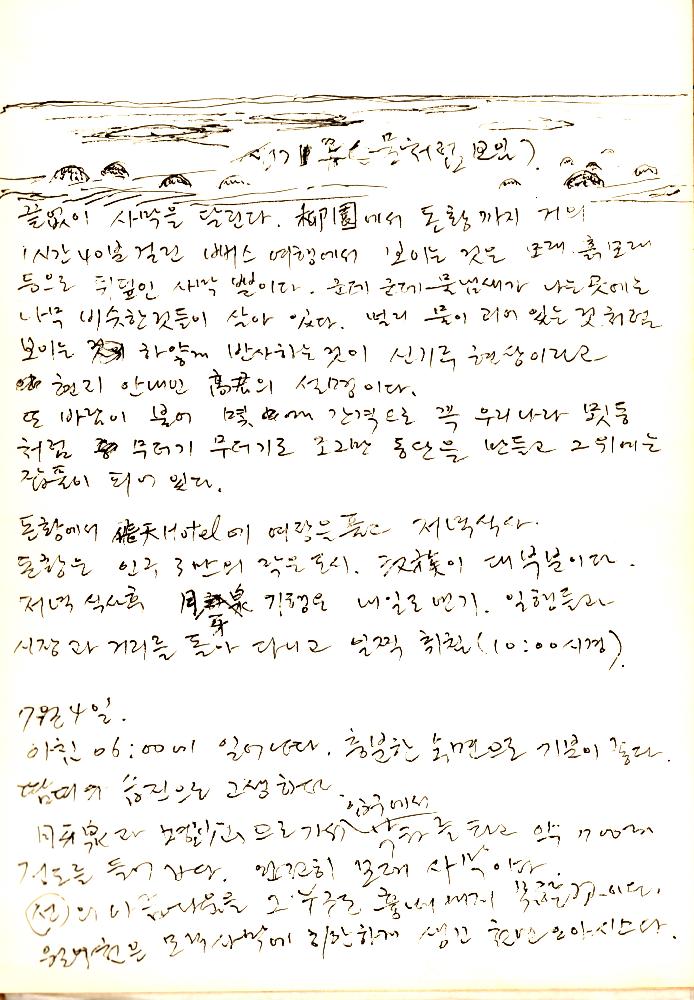 신기루 (물처럼 보임)
끝없이 사막을 달린다. 柳園에서 돈황까지 거의
1시간 40분 걸린 뻐스 여행에서 보이는 것은 모래 흙모래
등으로 뒤덮인 사막 뿐이다. 군데 군데 물냄새가 나는 곳에는
나무 비슷한 것들이 살아 있다. 멀리 물이 괴어 있는 것 처럼
보이는 하얗게 반사하는 것이 신기루 현상이라고
현지 안내인 高君의 설명이다.
또 바람이 불어 몇 간격으로 꼭 우리나라 묏등
처럼 무더기 무더기로 조그만 동산을 만들고 그 위에는
잡풀이 되어 있다.
돈황에서 飛天 Hotel에 여장을 풀고 저녁식사.
돈황은 인구 3만의 작은 도시. 汉族이 대부분이다.
저녁 식사후 月牙泉 기행은 내일로 넘기고 일행들과
시장과 거리를 돌아 다니고 일찍 취침(10:00시경).
7월 4일.
아침 06:00에 일어나다. 충분한 숙면으로 기분이 좋다.
땀띠와 습진으로 고생하다.
입구에서
月牙泉과 타고 약 1700m
정도를 들어 갔다. 완전히 모래 사막이다.
의 아름다움을 그
월아천은 모래사막에 희한하게 생긴 천연 오아시스다.